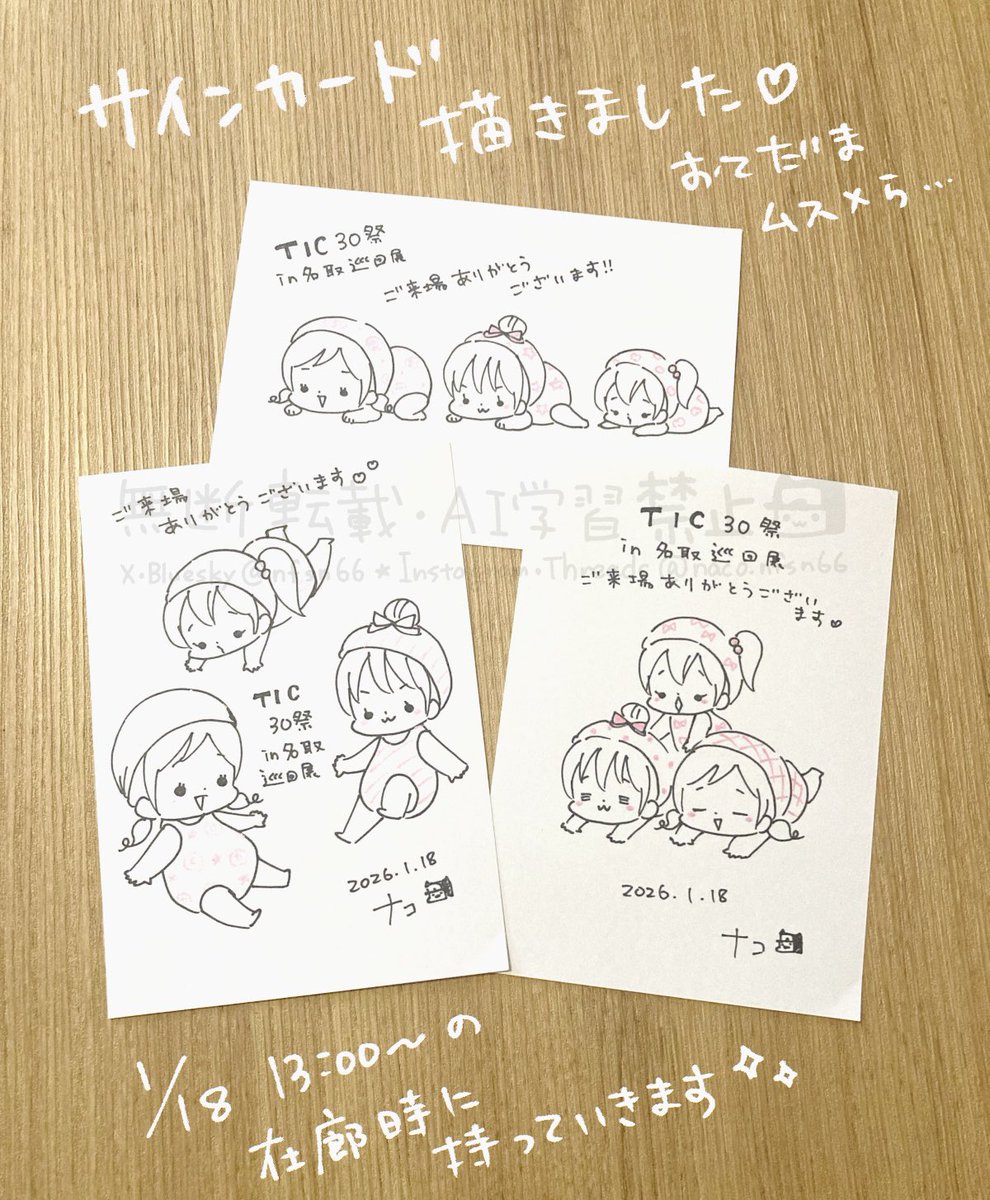 サインカード
描きました♡
おてだま
ムスメら…
TIC 30祭
in 名取巡回展
ご来場ありがとう
ございます!!
ご来場
ありがとうございます♡♡
TIC
30祭
in 名取
巡回展
2026.1.18
ナコ
TIC 30祭
in 名取巡回展
ご来場ありがとうござい
ます♡
2026.1.18
ナコ
無断転載・AI学習禁止
X・Bluesky@nfsn66★Instagram・Threads@naco.nfsn66
1/18 13:00〜の
在廊時に
持っていきます